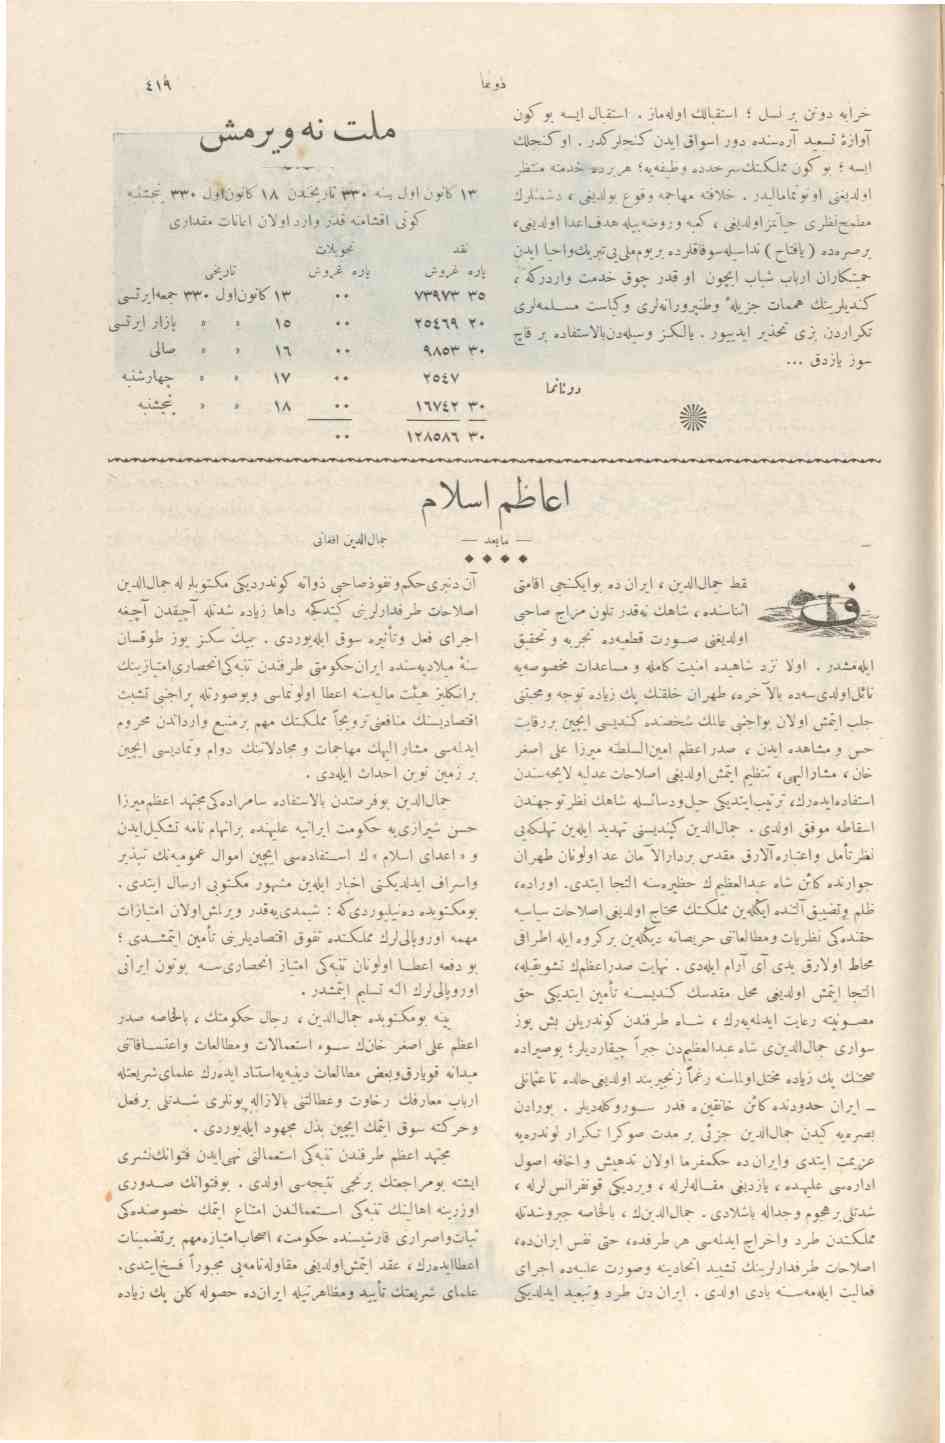 دونما
٤١٩
خرابه دونن بر نسل ؛ استقبالك اوله‌ماز . استقبال ایسه بو كون
آوازهٔ تسعید آره‌سنده دور اسواق ایدن كنجلركدر . او كنجلك
ایسه ؛ بو كون مملكتك سرحدده وظیفه‌یه ؛ هر یرده خدمته منتظر
اولدیغنی اونوتمامالیدر . خلافته مهاجمه وقوع بولدیغی ، دشمنلرك
مطمح نظری حیاتمز اولدیغی ، كعبه و روضه بیله هدف اعدا اولدیغی ،
بر صره‌ده ( یافتاح ) نداسیله سوقاقلرده بر یوم ملی‌یی تبریك و احیا ایدن
حمیتكاران ارباب شباب ایچون او قدر چوق خدمت واردركه ،
كندیلرینك هممات جزیله‌ٔ وطنپرورانه‌لری و كیاست مسلمه‌لری
تكراردن بزی تحذیر ایدییور . یالكز وسیله‌دن بالاستفاده بر قاچ
سوز یازدق ...
دونانما
ملت نه ویرمش
١٣ كانون اول سنه ٣٣٠ تاریخندن ١٨ كانون اول ٣٣٠ پنجشنبه
كونی اقشامنه قدر وارد اولان اعانات مقداری
نقد تحویلات
پاره غروش پاره غروش تاریخی
٣٥ ٧٣٩٧٣ ٠٠ ١٣ كانون اول ٣٣٠ جمعه ایرتسی
٢٠ ٢٥٤٦٩ ٠٠ ١٥ » » بازار ایرتسی
٣٠ ٩٨٥٣ ٠٠ ١٦ » » صالی
٢٥٤٧ ٠٠ ١٧ » » چهارشنبه
٣٠ ١٦٧٤٢ ٠٠ ١٨ » » پنجشنبه
٣٠ ١٢٨٥٨٦ ٠٠
اعاظم اسلام
— مابعد — جمال‌الدین افغانی
فقط جمال‌الدین ، ایران ده بو ایكنجی اقامتی
اثناسنده ، شاهك نه‌قدر تلون مزاج صاحبی
اولدیغنی صورت قطعیه‌ده تجربه و تحقیق
ایله‌مشدر . اولا نزد شاهیده امنیت كامله و مساعدات مخصوصه‌یه
نائل اولدی‌سه‌ده بالآخره ، طهران خلقنك پك زیاده توجه و محبتنی
جلب ایتمش اولان بو اجنبی عالمك شخصنده كندیسی ایچین بر رقابت
حس و مشاهده ایدن ، صدر اعظم امین‌السلطنه میرزا علی اصغر
خان ، مشارالیهی ، تنظیم ایتمش اولدیغی اصلاحات عدلیه لایحه‌سندن
استفاده ایده‌رك ، ترتیب ایتدیكی حیل و دسائسله شاهك نظر توجهندن
اسقاطه موفق اولدی . جمال‌الدین كندیسنی تهدید ایله‌ین تهلكه‌یی
نظر تأمل و اعتباره آلارق مقدس بر دارالآمان عد اولونان طهران
جوارنده كائن شاه عبدالعظیم ك حظیره‌سنه التجا ایتدی . اوراده ،
ظلم و تضییق آلتنده ایكله‌ین مملكتك محتاج اولدیغی اصلاحات سیاسیه
حقنده‌كی نظریات و مطالعاتنی حریصانه دیكله‌ین بر كروه ایله اطرافی
محاط اولارق یدی آی آرام ایله‌دی . نهایت صدراعظم ك تشویقیله ،
التجا ایتمش اولدیغی محل مقدسك كندیسنه تأمین ایتدیكی حق
مصونیته رعایت ایدلمه‌یه‌رك ، شاه طرفندن كوندریلن بش یوز
سواری جمال‌الدین‌ی شاه عبدالعظیم‌دن جبراً چیقاردیلر ؛ بو صیراده
صحتك پك زیاده مختل اولماسنه رغماً زنجیربند اولدیغی حالده تا عثمانلی
ـ ایران حدودنده كائن خانقین ه قدر سوروكله‌دیلر . بورادن
بصره‌یه كیدن جمال‌الدین جزئی بر مدت صوكرا تكرار لوندره‌یه
عزیمت ایتدی و ایران ده حكمفرما اولان تدهیش و اخافه اصول
اداره‌سی علیهنده ، یازدیغی مقاله‌لرله ، ویردیكی قونفرانس لرله ،
شدتلی بر هجوم و جداله باشلادی . جمال‌الدین ك ، بالخاصه جبر و شدتله
مملكتدن طرد و اخراج ایدلمه‌سی هر طرفده ، حتی نفس ایران ده ،
اصلاحات طرفدارلرینك تشیید اتحادینه و صورت علنیه‌ده اجرای
فعالیت ایله‌مه‌سنه بادی اولدی . ایران دن طرد و تبعید ایدلدیكی
آن دنبری حكم و نفوذ صاحبی ذواته كوندردیكی مكتوبلر له جمال‌الدین
اصلاحات طرفدارلرینی كیتدكجه داها زیاده شدتله آچیقدن آچیغه
اجرای فعل و تأثیره سوق ایله‌یوردی . بیك سكز یوز طوقسان
سنهٔ میلادیه‌سنده ایران حكومتی طرفندن تنبه‌كی انحصاری امتیازینك
بر انكلیز هیئت مالیه‌سنه اعطا اولونماسی و بو صورتله بر اجنبی تشبث
اقتصادیسنك منافعنی ترویجاً مملكتك مهم بر منبع وارداتدن محروم
ایدلمه‌سی مشارالیهك مهاجمات و مجادلاتنك دوام و تمادیسی ایچین
بر زمین نوین احداث ایله‌دی .
جمال‌الدین بو فرصتدن بالاستفاده سامراده‌كی مجتهد اعظم میرزا
حسن شیرازی‌یه حكومت ایرانیه علیهنده بر اتهام نامه تشكیل ایدن
و « اعدای اسلام » ك استفاده‌سی ایچین اموال عمومیه‌نك تبذیر
و اسراف ایدلدیكنی اخبار ایله‌ین مشهور مكتوبی ارسال ایتدی .
بو مكتوبده ده‌نیلیوردی كه : شیمدی‌یه‌قدر ویرلمش اولان امتیازات
مهمه اوروپالی‌لرك مملكتده تفوق اقتصادیلرینی تأمین ایتمشدی ؛
بو دفعه اعطا اولونان تنبه‌كی امتیاز انحصاری‌سه بوتون ایرانی
اوروپالی‌لرك الینه تسلیم ایتمشدر .
ینه بو مكتوبده جمال‌الدین ، رجال حكومتك ، بالخاصه صدر
اعظم علی اصغر خان ك سوء استعمالات و مطالعات و اعتسافاتنی
میدانه قویارق و بعض مطالعات دینیه‌یه استناد ایده‌رك علمای شریعتله
ارباب معارفك رخاوت و عطالتنی بالازاله بونلری شدتلی بر فعل
و حركته سوق ایتمك ایچین بذل مجهود ایله‌یوردی .
مجتهد اعظم طرفندن تنبه‌كی استعمالنی نهی ایدن فتوانك نشری
ایشته بو مراجعتك برنجی نتیجه‌سی اولدی . بو فتوانك صدوری
اوزرینه اهالینك تنبه‌كی استعمالندن امتناع ایتمك خصوصنده‌كی
ثبات و اصراری قارشیسنده حكومت ، اصحاب امتیازه مهم بر تضمینات
اعطا ایده‌رك ، عقد ایتمش اولدیغی مقاوله‌نامه‌یی مجبوراً فسخ ایتدی .
علمای شریعتك تأیید و مظاهرتیله ایران ده حصوله كلن پك زیاده